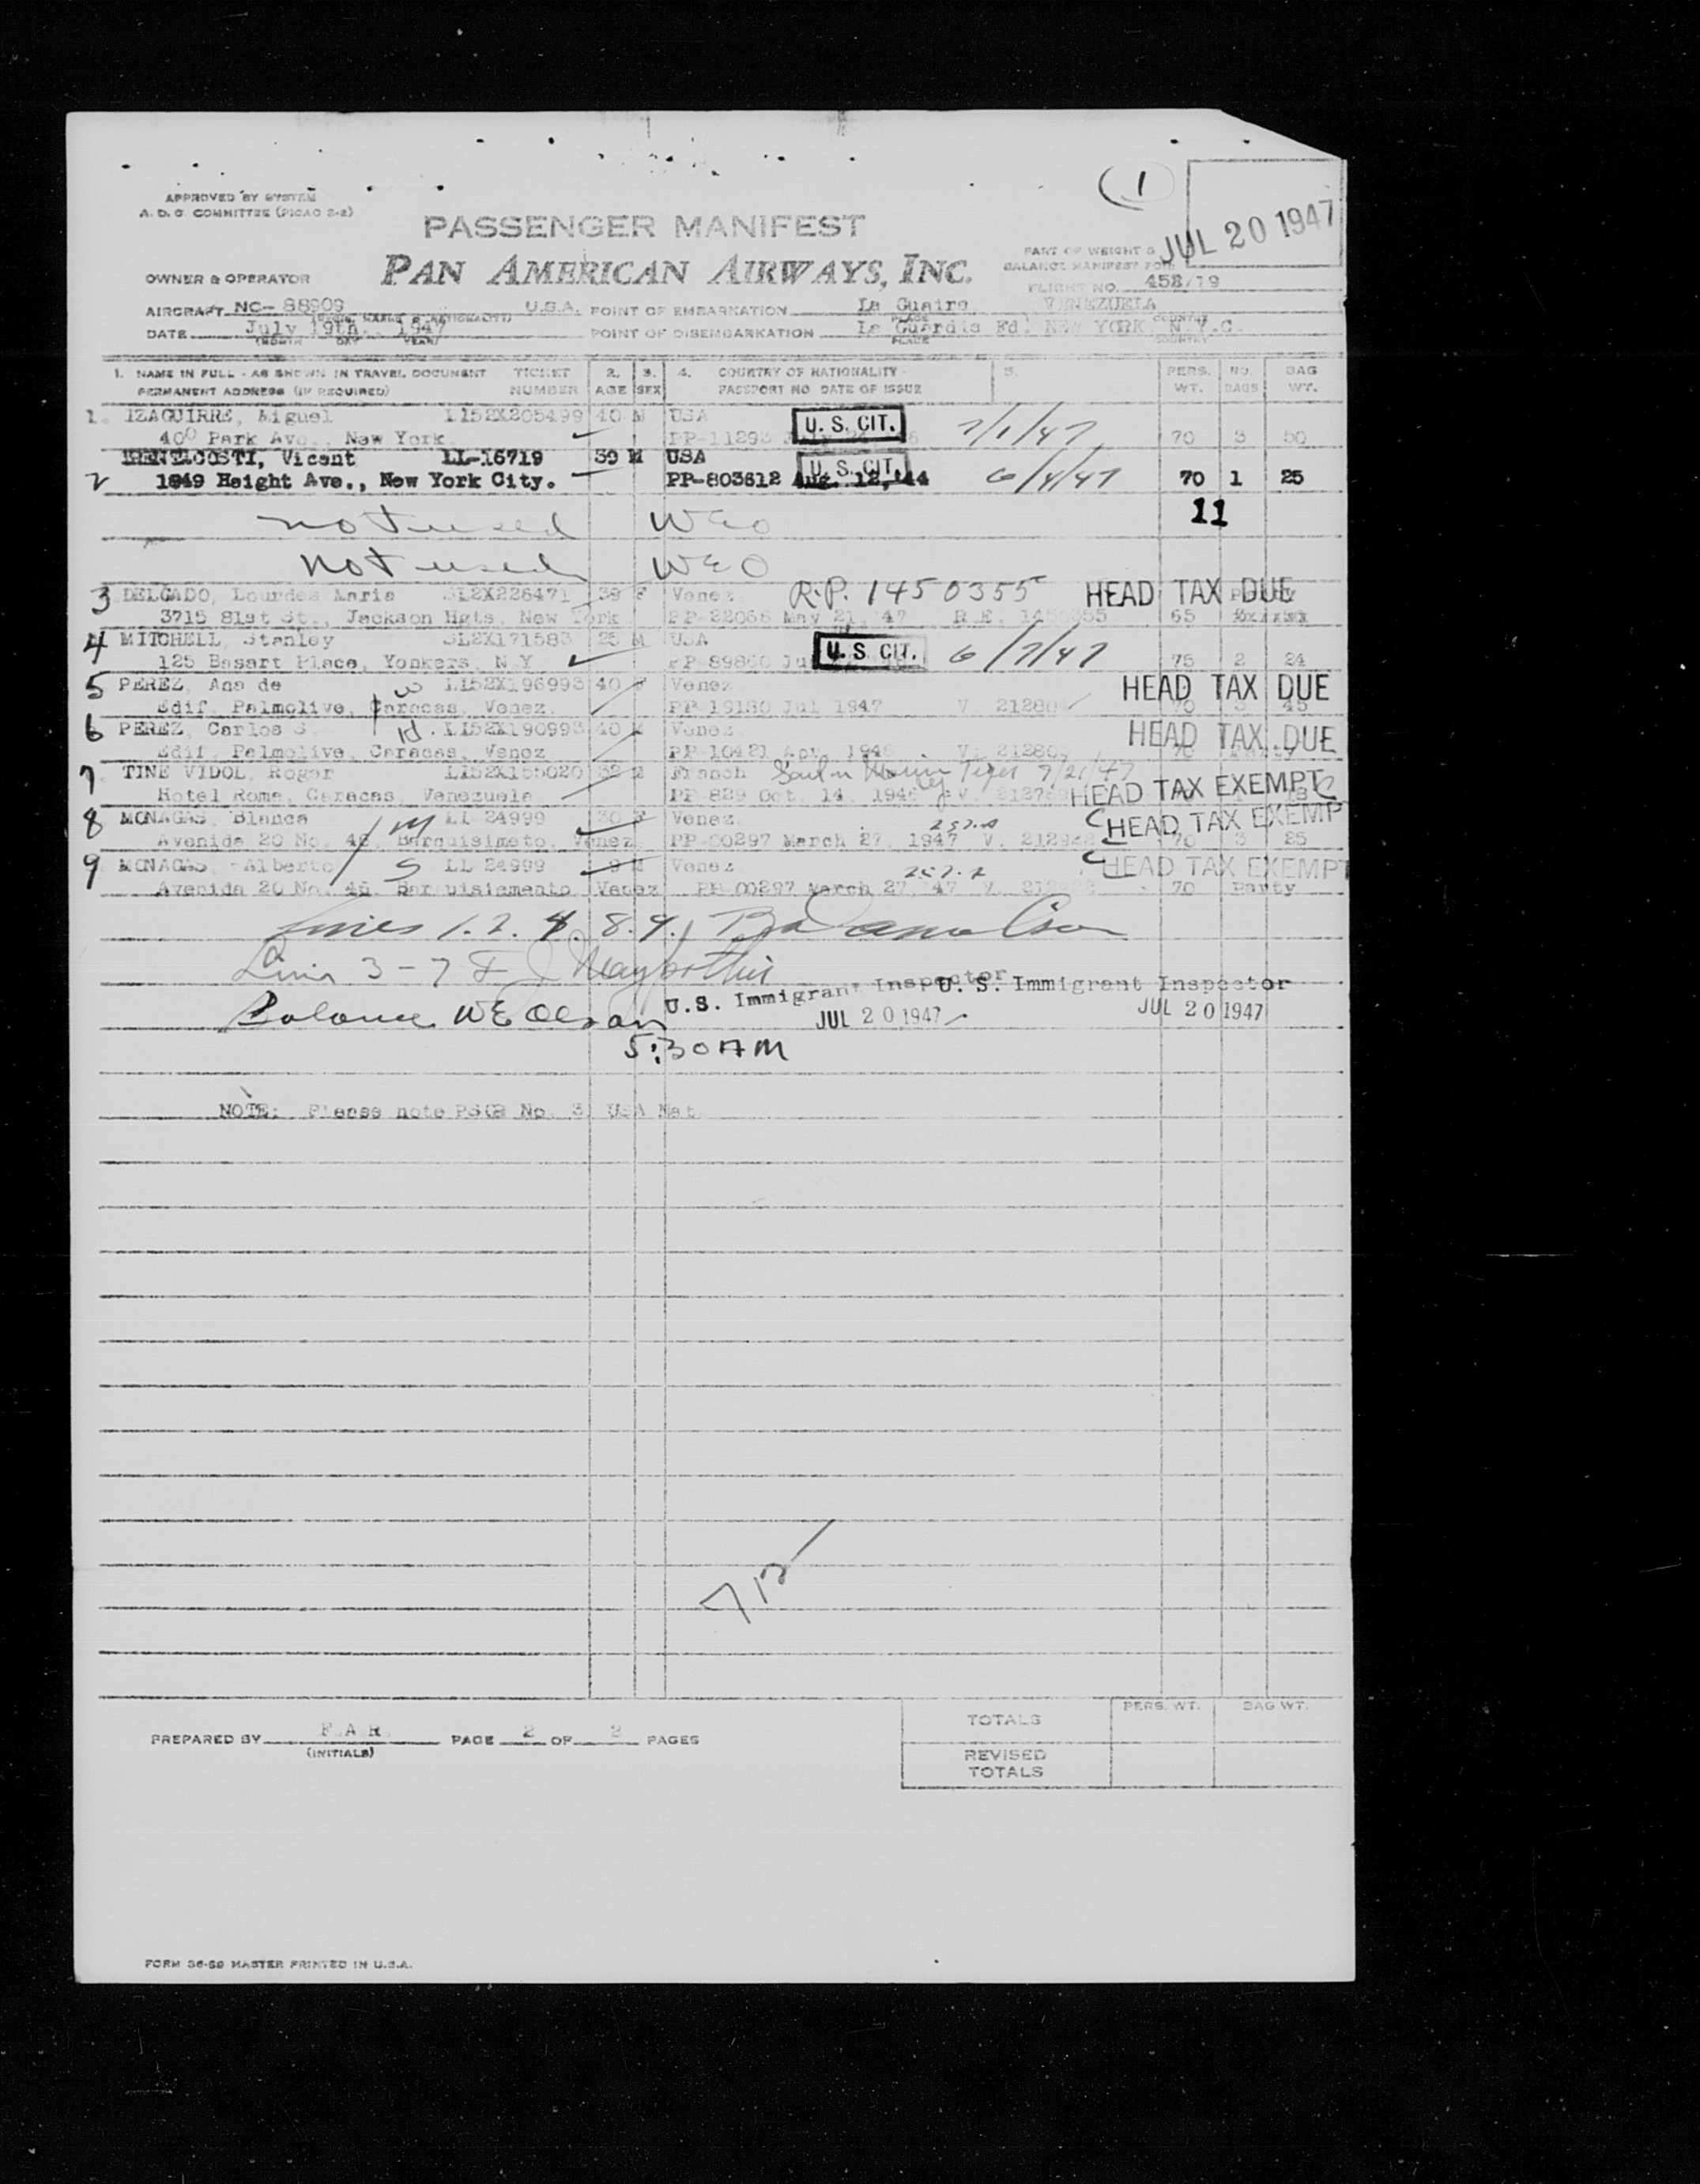 (1)
APPROVED BY SYSTEM
A. D. C. COMMITTEE (PICAO 2-2)
PASSENGER MANIFEST
JUL 20 1947
PART OF WEIGHT &
BALANCE MANIFEST FOR
OWNER & OPERATOR PAN AMERICAN AIRWAYS, INC.
FLIGHT NO. 458/19
AIRCRAFT NC- 88909 U.S.A. POINT OF EMBARKATION La Guaira VENEZUELA
DATE July 19th., 1947 POINT OF DISEMBARKATION La Guardia Fd. NEW YORK N.Y.C.
(MONTH DAY YEAR) PLACE COUNTRY
1. NAME IN FULL - AS SHOWN IN TRAVEL DOCUMENT TICKET 2. 3. 4. COUNTRY OF NATIONALITY - 5. PERS. NO. BAG
PERMANENT ADDRESS (IF REQUIRED) NUMBER AGE SEX PASSPORT NO DATE OF ISSUE WT. BAGS WT.
1. IZAGUIRRE, Miguel LI152X205499 40 M USA U. S. CIT. 7/1/47
400 Park Ave., New York PP-11293 70 3 50
Vicent LL-16719 39 M USA U. S. CIT.
2 1849 Haight Ave., New York City. PP-803612 Aug. 12,'44 6/4/47 70 1 25
not used WEO 11
Not used WEO
3 DELGADO, Lourdes Maria SL2X226471 38 F Venez. R.P. 1450355 HEAD TAX DUE
3715 81st St., Jackson Hgts, New York PP-22066 May 21, '47 R.E. 65
4 MITCHELL, Stanley SL2X171583 25 M USA U. S. CIT. 6/7/47
125 Basart Place, Yonkers, N.Y. PP-89860 75 2 24
5 PEREZ, Ana de W LI152X196993 40 F Venez HEAD TAX DUE
Edif. Palmolive, Caracas, Venez. PP-19130 Jul 1947 V. 70 3 45
6 PEREZ, Carlos S. H. LI52X190993 40 M Venez. HEAD TAX DUE
Edif. Palmolive, Caracas, Venez PP-10421 Apr. V. 70
7 TINE VIDOL, Roger LI52X155020 32 M French 7/21/47
Hotel Roma, Caracas, Venezuela PP-829 Oct. 14, V. HEAD TAX EXEMPT
8 MONAGAS, Blanca M LL-24999 30 F Venez. HEAD TAX EXEMP
Avenida 20 No. 46, Barquisimeto, Venez. PP-00297 March 27, 1947 V. 70 3 25
9 MONAGAS, Alberto S LL-24999 9 M Venez HEAD TAX EXEMPT
Avenida 20 No. 46 Venez PP-00297 March 27,'47 V. 70 Party
Lines 1. 2. 4. 8. 9.
Lines 3-7
Balance WE Olson
U.S. Immigrant Inspector U. S. Immigrant Inspector
JUL 20 1947 JUL 20 1947
5:30 AM
NOTE: Please note PSGR No. 3 USA Nat.
712
TOTALS PERS. WT. BAG WT.
PREPARED BY F.A.R. PAGE 2 OF 2 PAGES
(INITIALS)
REVISED
TOTALS
FORM 36-59 MASTER PRINTED IN U.S.A.